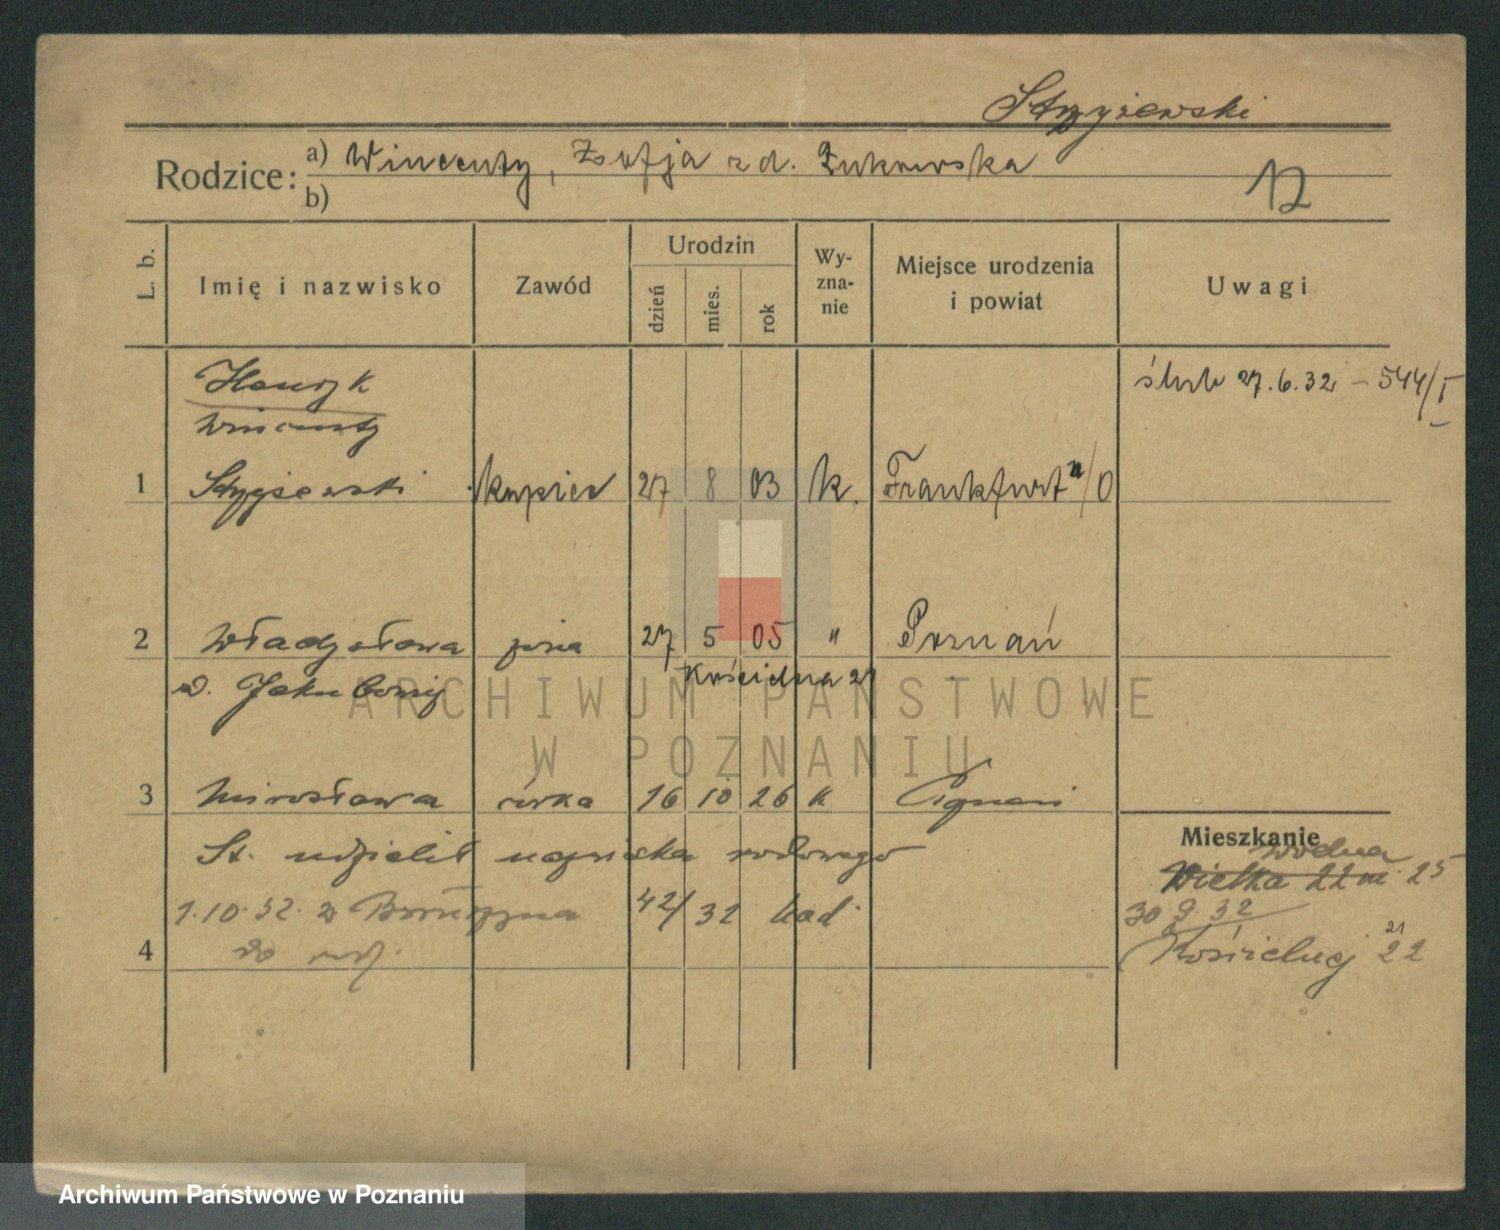 Stryżewski
Rodzice: a) Wincenty, Zofja z d. Żukowska
b)
12
L. b. Imię i nazwisko Zawód Urodzin dzień mies. rok Wy-zna-nie Miejsce urodzenia i powiat Uwagi
Henryk ślub 27.6.32 – 544/I
Wincenty
1 Stryżewski kupiec 27 8 03 k. Frankfurt n/O
2 Władysława żona 27 5 05 " Poznań
d. Jakubowij Kościelna 21
3 Mirosława córka 16 10 26 k Poznań
Mieszkanie
St. udzielił nazwiska rodowego
Wodna
Wielka 22 m. 25
1.10.32. 42/32
30 9 32
4 do
Kościelnej 22
21
ARCHIWUM PAŃSTWOWE
W POZNANIU
Archiwum Państwowe w Poznaniu